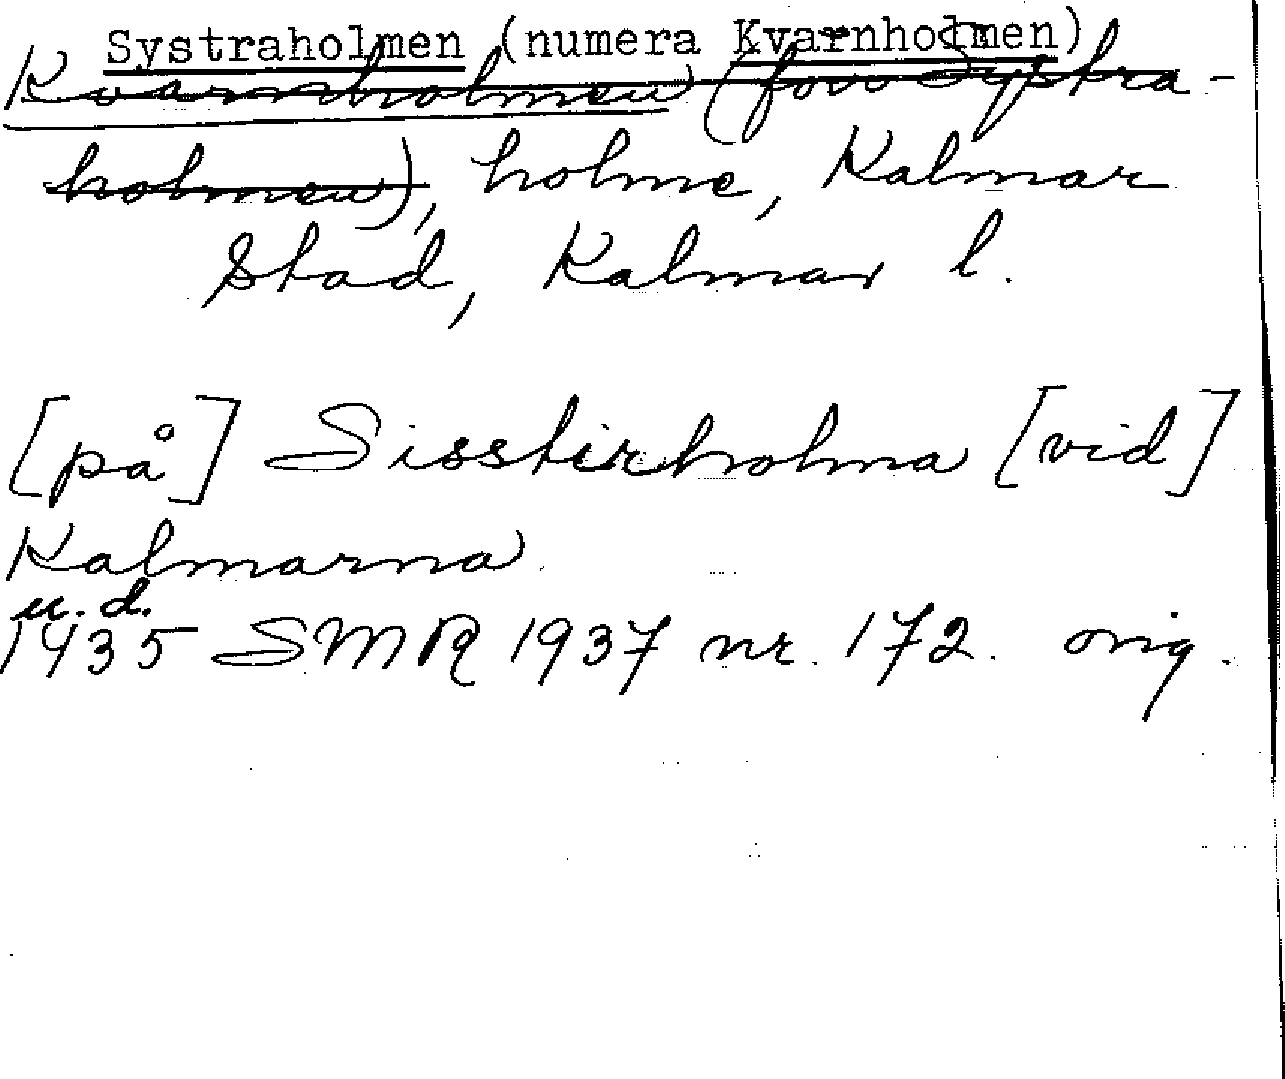 Systraholmen (numera Kvarnholmen)
Kvarnholmen (förr Systra-
holmen), holme, Kalmar
Stad, Kalmar l.
[på] Sisstirholma [vid]
Kalmarna
u. d.
1435 SMR 1937 nr. 172. orig.